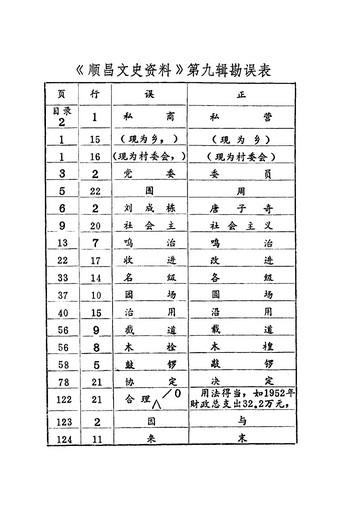 《顺昌文史资料》第九辑勘误表
页 行 误 正
目录2 1 私商 私营
1 15 (现为乡，) (现为乡)
1 16 (现为村委会，) (现为村委会)
3 2 党委 委员
5 22 围 周
6 2 刘成栋 唐子奇
9 20 社会主 社会主义
13 7 鸣治 鸣冶
22 17 收进 改进
33 14 名级 各级
37 10 园场 园场
40 15 治用 沿用
56 9 截道 截道
56 8 木栓 木
58 5 鼓锣 敲锣
78 21 协定 决定
122 21 合理 /0 用法得当，如1952年
财政总支出32.2万元，
123 2 因 与
124 11 来 末